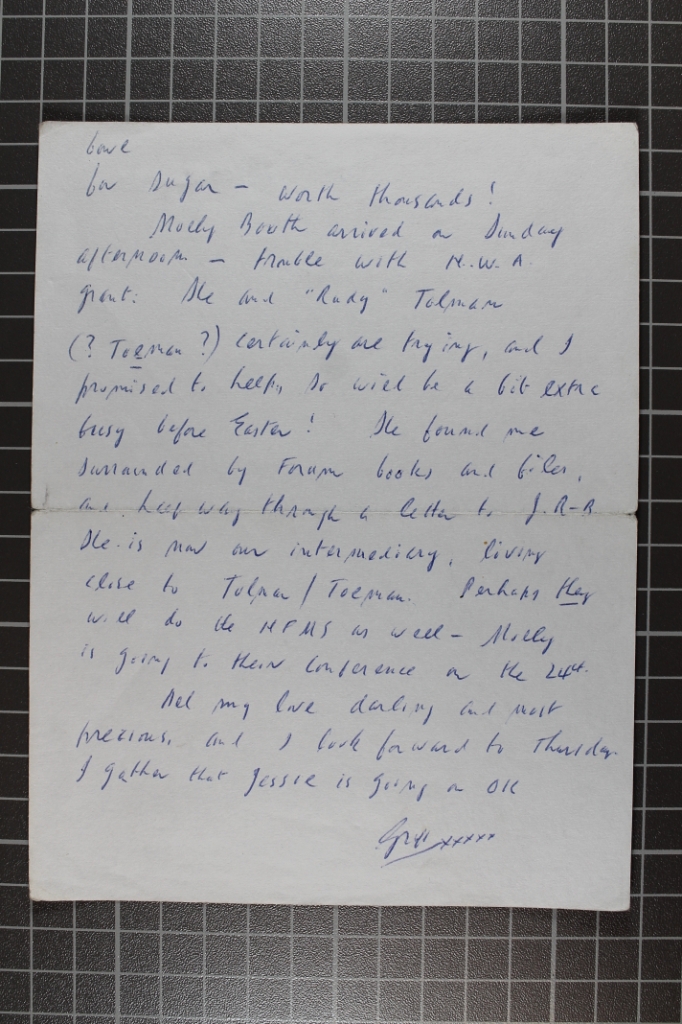 love
for Sugar – worth thousands!
Molly Booth arrived on Sunday
afternoon – trouble with N.W.A.
grant. She and "Rudy" Tolman
(? Toeman ?) certainly are trying, and I
promised to help, so will be a bit extra
busy before Easter! She found me
surrounded by Forum books and files,
and half way through a letter to J.R-B
She is now our intermediary, living
close to Tolman / Toeman. Perhaps they
will do the NFMS as well – Molly
is going to their conference on the 24th.
All my love darling and most
precious, and I look forward to Thursday.
I gather that Jessie is going on OK
Griff xxxxx